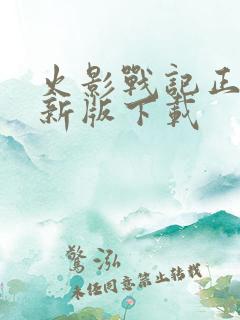 火影戰記正
新版下載
驚泓
未经同意禁止转载